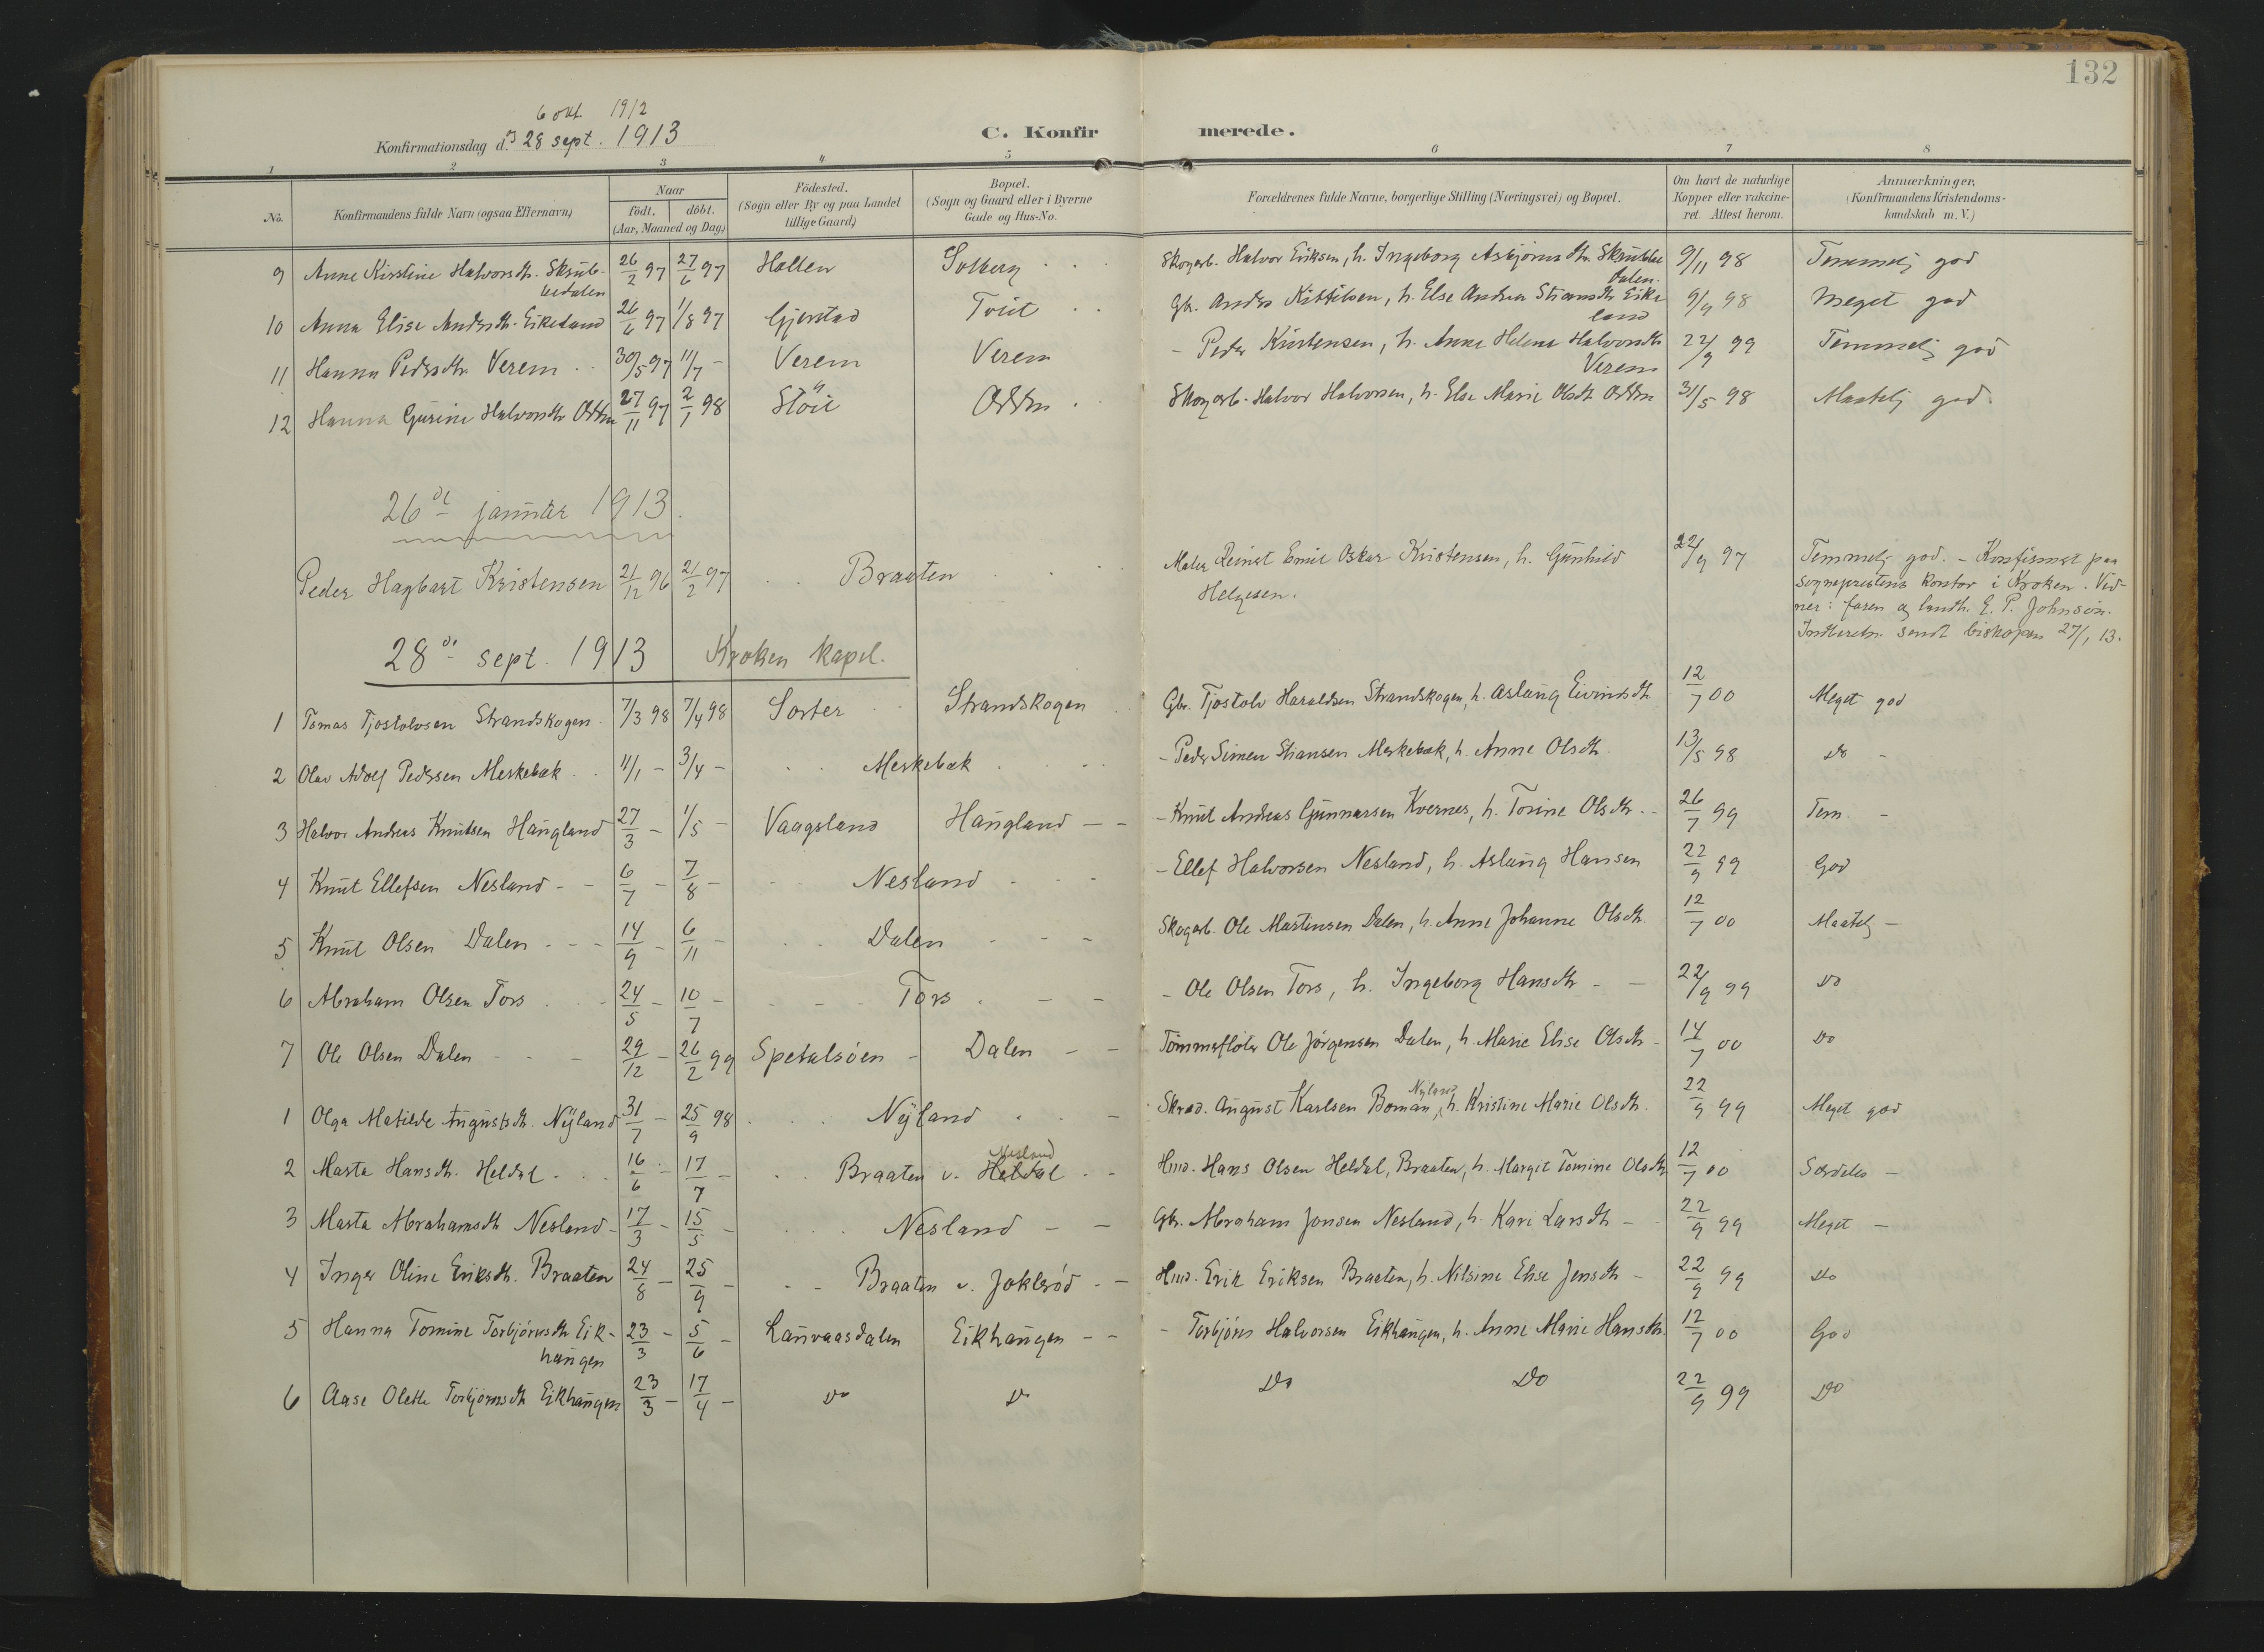 132
6 okt. 1912
Konfirmationsdag d. 28 sept. 1913
C. Konfirmerede.
1 2 3 4 5 6 7 8
No. Konfirmandens fulde Navn (ogsaa Efternavn) Naar födt. döbt. (Aar, Maaned og Dag) Födested. (Sogn eller By og paa Landet tillige Gaard) Bopæl. (Sogn og Gaard eller i Byerne Gade og Hus-No. Forældrenes fulde Navne, borgerlige Stilling (Næringsvei) og Bopæl. Om havt de naturlige Kopper eller vakcineret Attest herom. Anmærkninger, (Konfirmandens Kristendomskundskab m. V.)
9 Anne Kirstine Halvorsdtr. Skrub- 26/2 97 27/6 97 Hollen Solberg Skogarb. Halvor Eriksen, h. Ingeborg Asbjørnsdtr. 9/11 98 Temmelig god
dalen.
10 Anna Elise Andersdtr. Eikeland 26/6 97 1/8 97 Gjerstad Tveit Gbr. Anders Kittilsen, h. Else Andrea Stiansdtr Eike 9/9 98 Meget god
land
11 Hanna Pedersdtr. Verem 30/5 97 11/7 - Verem Verem - Peder Kristensen, h. Anne Helene Halvorsdtr 22/9 99 Temmelig god
Verem
12 Hanna Gurine Halvorsdtr Otten 27/11 97 2/1 98 Stöü Otten Skogarb. Halvor Halvorsen, h. Else Marie Olsdtr Otten 31/5 98 Maatelig god
26de januar 1913.
Peder Hagbart Kristensen 21/12 96 21/2 97 Braaten Maler Reinert Emil Oskar Kristensen, h. Gunhild 22/9 97 Temmelig god. - Konfirmert paa
Helgesen. sogneprestens kontor i Kroken. Vid-
ner: faren og landh. E. P. Johnsen.
Indberetn. sendt biskopen 27/1 13.
28de sept. 1913 Kroken kapel.
1 Tomas Tjostolvsen Strandskogen 7/3 98 7/4 98 Sorter Strandskogen Gbr. Tjostolv Haraldsen Strandskogen, h. Aslaug Eivindsdtr 12/7 00 Meget god
2 Olav Adolf Pedersen Merkebæk 11/1 - 3/4 - Merkebæk - Peder Simen Stiansen Merkebæk, h. Anne Olsdtr 13/5 98 Do -
3 Halvor Andreas Knutsen Haugland 27/3 - 1/5 - Vaagsland Haugland - - - Knut Andreas Gunnarsen Kvernes, h. Torine Olsdtr. 26/7 99 Tem. -
4 Knut Ellefsen Nesland - 6/7 - 7/8 - Nesland - Ellef Halvorsen Nesland, h. Aslaug Hansen 22/9 99 God
5 Knut Olsen Dalen - - 14/9 - 6/11 - Dalen Skogarb. Ole Martinsen Dalen, h. Anne Johanne Olsdtr 12/7 00 Maatelig -
6 Abraham Olsen Tors 24/5 - 10/7 - Tors - - - Ole Olsen Tors, h. Ingeborg Hansdtr - - 22/9 99 Do
7 Ole Olsen Dalen - - - 29/12 - 26/2 99 Spetalsöen - Dalen - - Tömmerflöter Ole Jörgensen Dalen, h. Marie Elise Olsdtr - 14/7 00 Do
Nyland
1 Olga Matilde Augustsdtr. Nyland 31/7 - 25/9 98 Nyland - Skræd. August Karlsen Boman, h. Kristine Marie Olsdtr. 22/9 99 Meget god
Nesland
2 Marta Hansdtr. Heldal 16/6 - 17/7 - Braaten v. Heldal - - Hmd. Hans Olsen Heldal, Braaten, h. Margit Tomine Olsdtr 12/7 00 Særdeles -
3 Marta Abrahamsdtr Nesland - 17/3 - 15/5 - Nesland - - Gbr. Abraham Jonsen Nesland, h. Kari Larsdtr - 22/9 99 Meget -
4 Inger Oline Eriksdtr. Braaten 24/8 - 25/9 - Braaten v. Joklröd - - Hmd. Erik Eriksen Braaten, h. Nilsine Elise Jensdtr - 22/9 99 Do
5 Hanna Tomine Torbjörnsdtr Eik- 23/3 - 5/6 - Lauvaasdalen Eikhaugen - - - Torbjörn Halvorsen Eikhaugen, h. Anne Marie Hansdtr. 12/7 00 God
haugen
6 Aase Olette Torbjörnsdtr Eikhaugen 23/3 - 17/4 - Do Do Do Do 22/9 99 Do